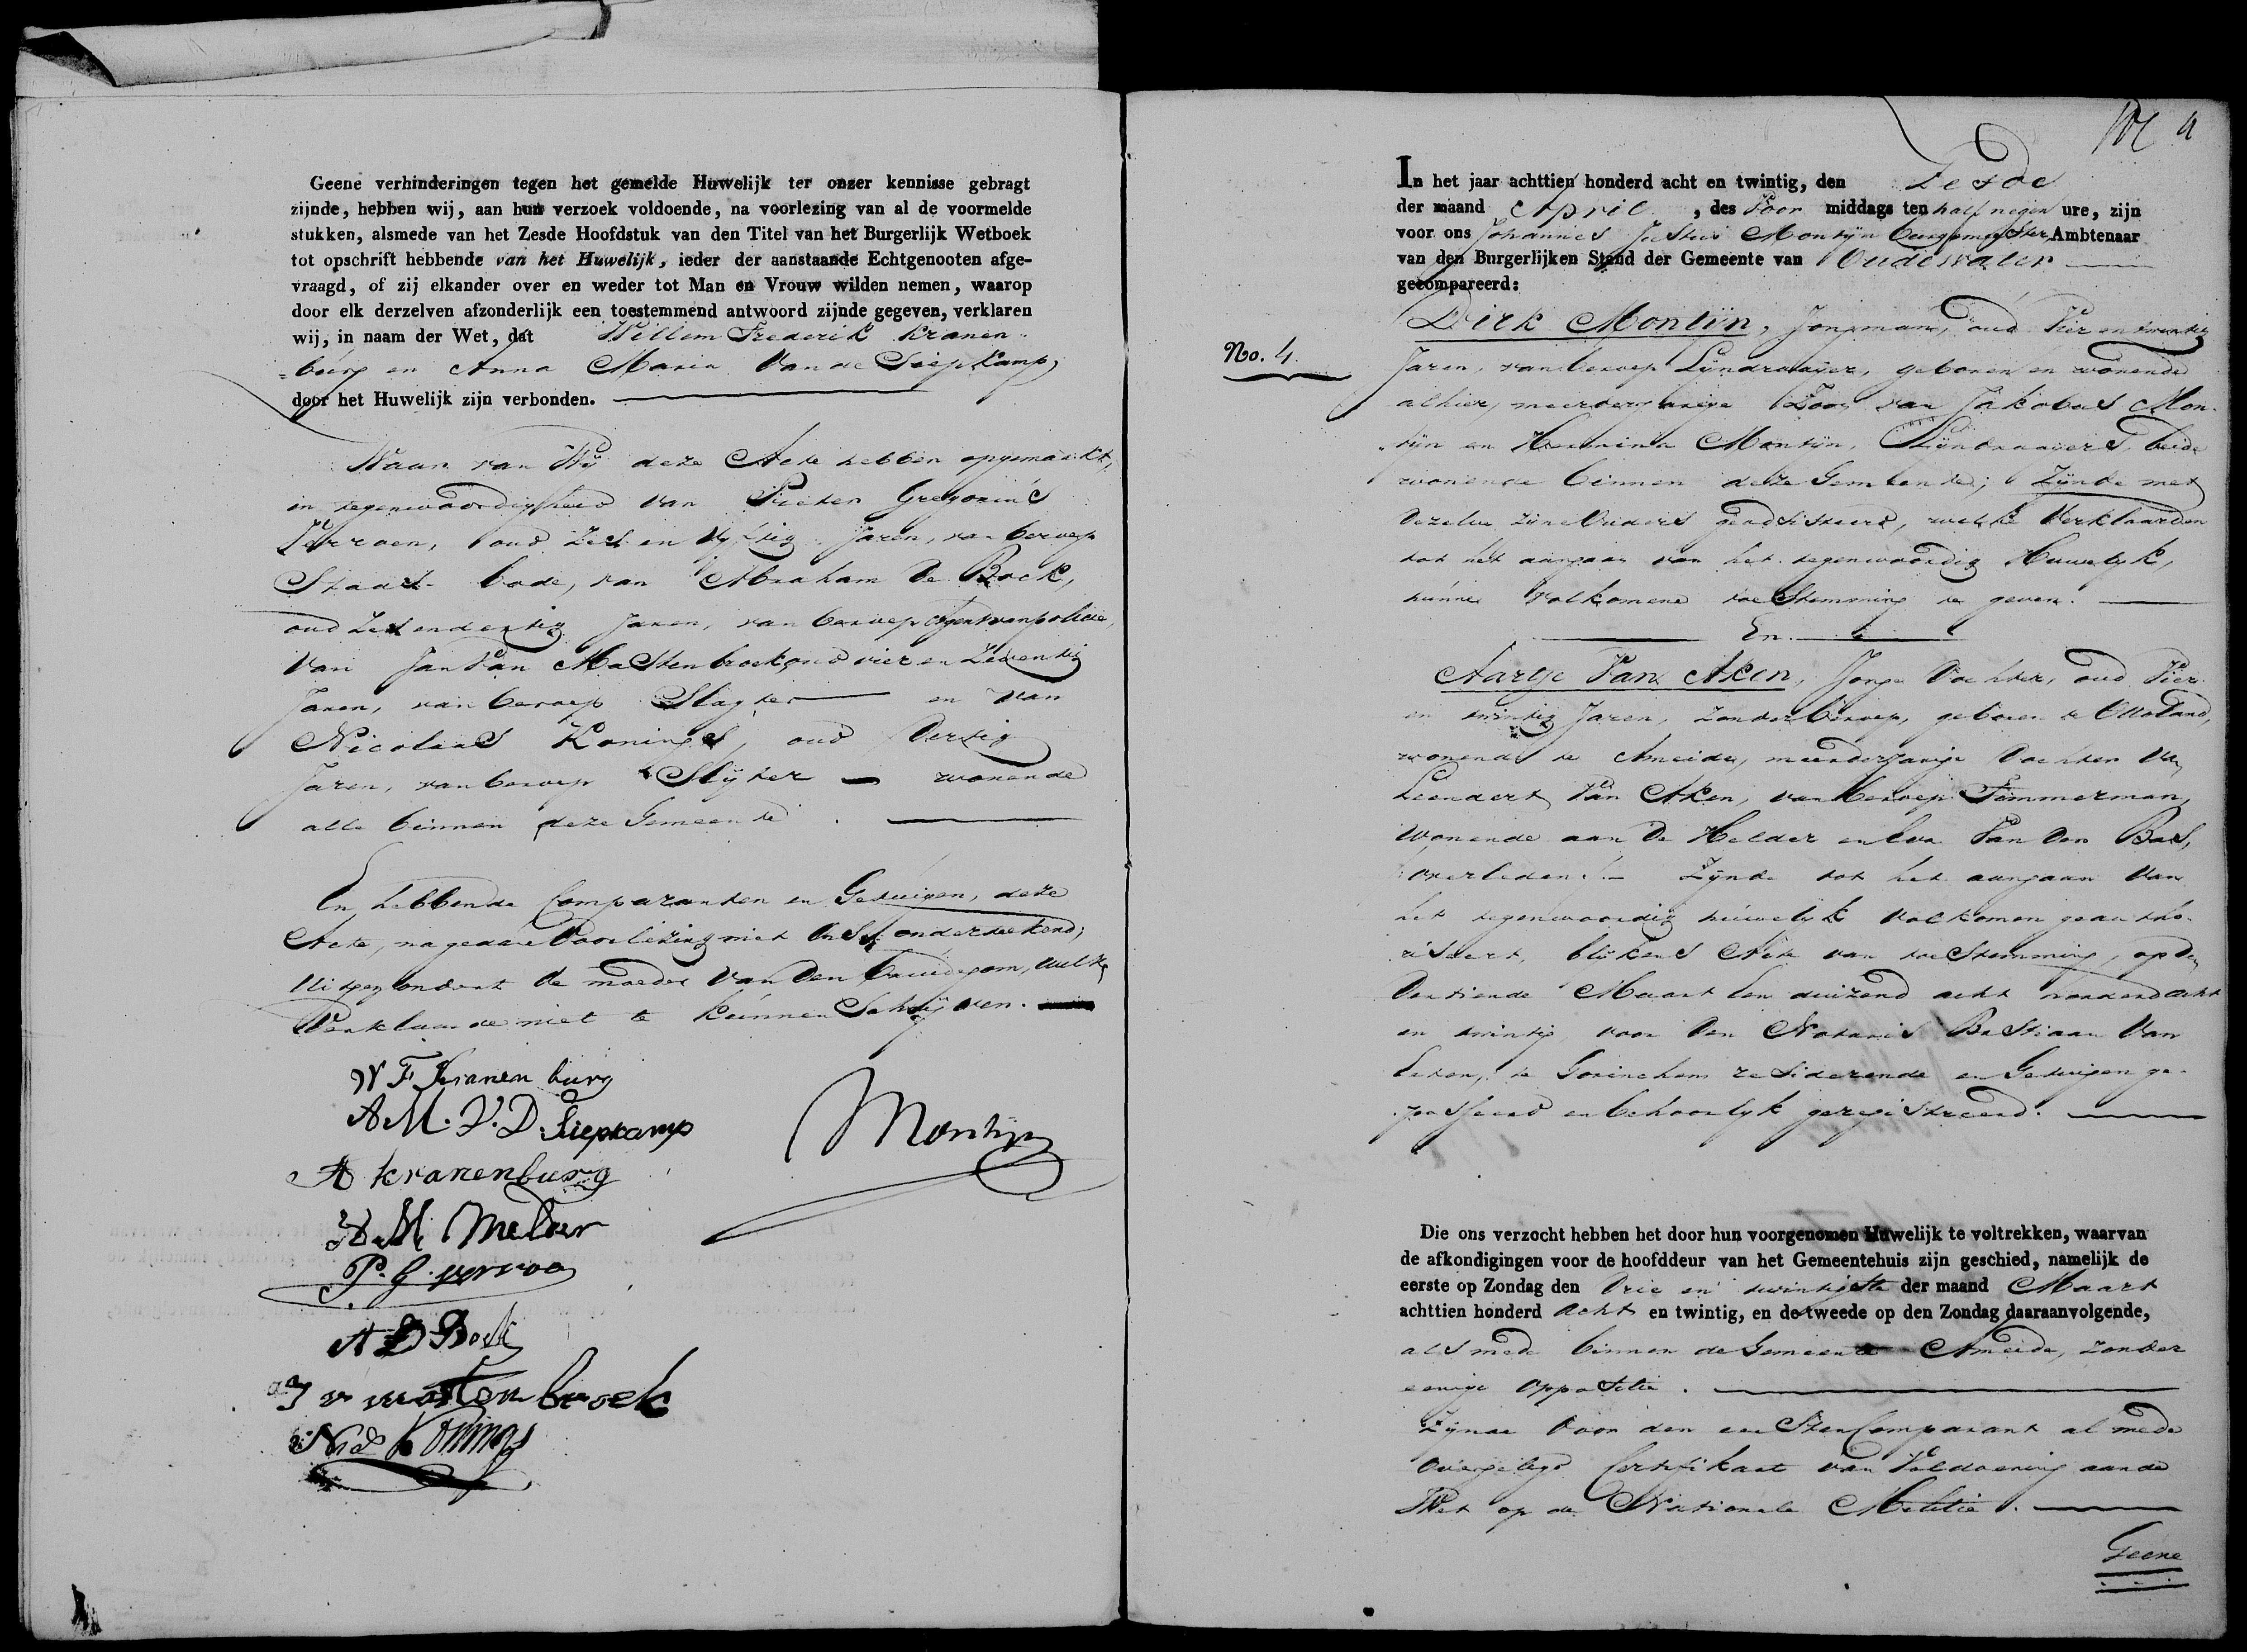 Geene verhinderingen tegen het gemelde Huwelijk ter onzer kennisse gebragt
zijnde, hebben wij, aan hun verzoek voldoende, na voorlezing van al de voormelde
stukken, alsmede van het Zesde Hoofdstuk van den Titel van het Burgerlijk Wetboek
tot opschrift hebbende van het Huwelijk, ieder der aanstaande Echtgenooten afge-
vraagd, of zij elkander over en weder tot Man en Vrouw wilden nemen, waarop
door elk derzelven afzonderlijk een toestemmend antwoord zijnde gegeven, verklaren
wij, in naam der Wet, dat Willem Frederik Kranen-
=burg en Anna Maria Van de Siepkamp,
door het Huwelijk zijn verbonden.
Waar van Wij deze Acte hebben opgemaakt,
in tegenwoordigheid van Pieter Gregorius
oud Zes en Vyftig Jaren, van beroep
Stads bode, van Abraham De Bock,
oud Zes en dertig Jaren, van beroep Agent van policie,
Van Jan Van Mastenbroek, oud vier en Zeventig
Jaren, van beroep Slagter en Van
Nicolaas Konings, oud Dertig
Jaren, van beroep Slyter wonende
alle binnen deze Gemeente.
En hebbende Comparanten en Getuigen, deze
Acte, na gedane Voorlezing met Ons onderteekend;
Uitgezonderd de moeder Van den bruidegom, welke
Verklaarde niet te kunnen Schrijven.
W F Kranenburg
A M. V. D. Siepkamp
Montijn
A Kranenburg
M Melder
P. G.
A D Bock
J v mastenbroek
Nics Konings
4
In het jaar achttien honderd acht en twintig, den Zesde
der maand April, des Voor middags ten half negen ure, zijn
voor ons Johannes Justus Montijn burgemeester, Ambtenaar
van den Burgerlijken Stand der Gemeente van Oudewater
gecompareerd:
No. 4.
Dirk Montijn, Jongman, oud Vier en twintig
Jaren, van beroep Lyndraayer, geboren en wonende
alhier, meerderjarige Zoon van Jakobus Mon-
tijn en Hermina Montijn, Lyndraayers, beide
wonende binnen deze Gemeente; Zijnde met
Dezelve zijne Ouders geadsisteerd, welke Verklaarden
tot het aangaan van het tegenwoordig Huwelyk,
hunne Volkomene toeStemming te geven.
En
Aartje Van Aken, Jonge Dochter, oud Vier
en twintig Jaren, Zonder beroep, geboren te Ottoland,
wonende te Ameide, meerderjarige Dochter Van
Leendert Van Aken, van beroep Timmerman,
Wonende aan De Helder en Eva Van Den Bas,
overleden. Zijnde tot het aangaan Van
het tegenwoordig huwelyk Volkomen geautho-
riseert, blykens Acte van toeStemming, op den
Dertiende Maart Een duizend acht honderd acht
en twintig, voor Den Notaris Bastiaan Van
te Gorinchem residerende en Getuigen ge-
passeerd en behoorlyk geregistreerd.
Die ons verzocht hebben het door hun voorgenomen Huwelijk te voltrekken, waarvan
de afkondigingen voor de hoofddeur van het Gemeentehuis zijn geschied, namelijk de
eerste op Zondag den Drie en twintigste der maand Maart
achttien honderd acht en twintig, en de tweede op den Zondag daaraanvolgende,
alsmede binnen de Gemeente Ameide, zonder
eenige Oppositie.
Zijnde Door den eerSten Comparant almede
Overgelegd Certifikaat van Voldoening aan de
Wet op de Nationale Militie.
Geene